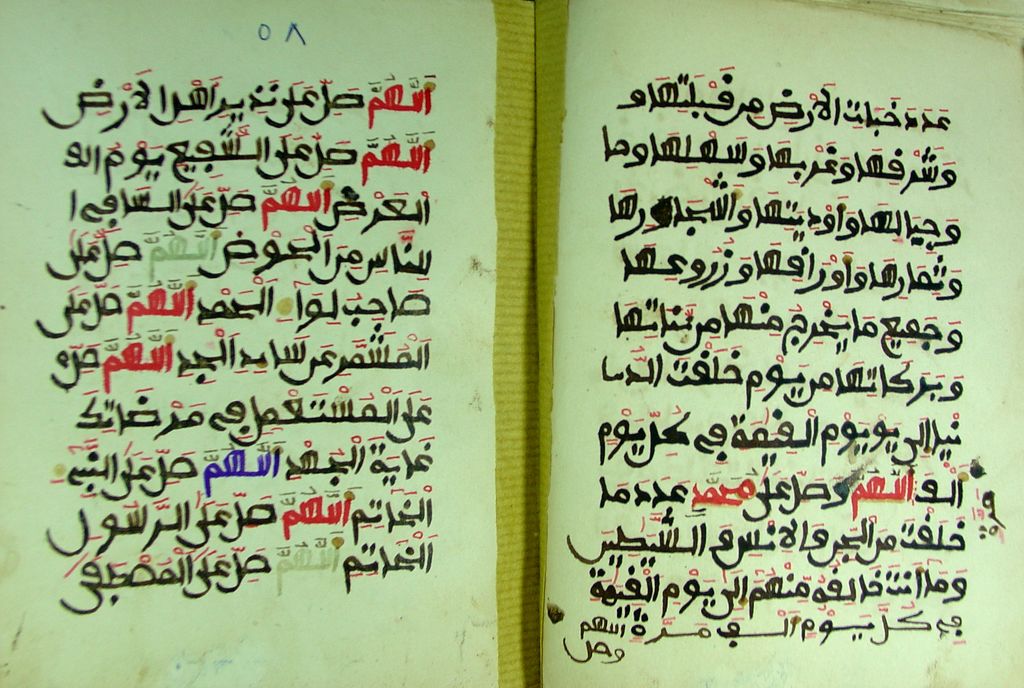 عدد خبات الارض من قبلتها و
وشرقها وغربها وسهلها وحا
وجبالها واوديتها والشجارها
وثمارها واوراقها وزروعها
وجميع ما يخرج منها من نباتها
وبركاتها من يوم خلقت
نيا الى يو يوم القيمة في كل يوم
الف اللهم وصل على محمد عدد ما
مرة
خلقت من الجن والانس و الشيطين
وما انت خالقه منهم الى يوم القيمة
في كل يوم الف مرة
اللهم
وصل
٥٨
اللهم صل على نذير اهل الارض
اللهم صل على الشفيع يوم
العرض اللهم صل على الساقي ا
للناس من الحوض اللهم صل على
صاحب لواء الحمد اللهم صل على
المشمر عن ساعد الجد اللهم صل
على المستعمل في مرضاتك
غاية الجهد اللهم صل على النبي
الخاتم اللهم صل على الرسول
الخاتم اللهم صل على المصطفى